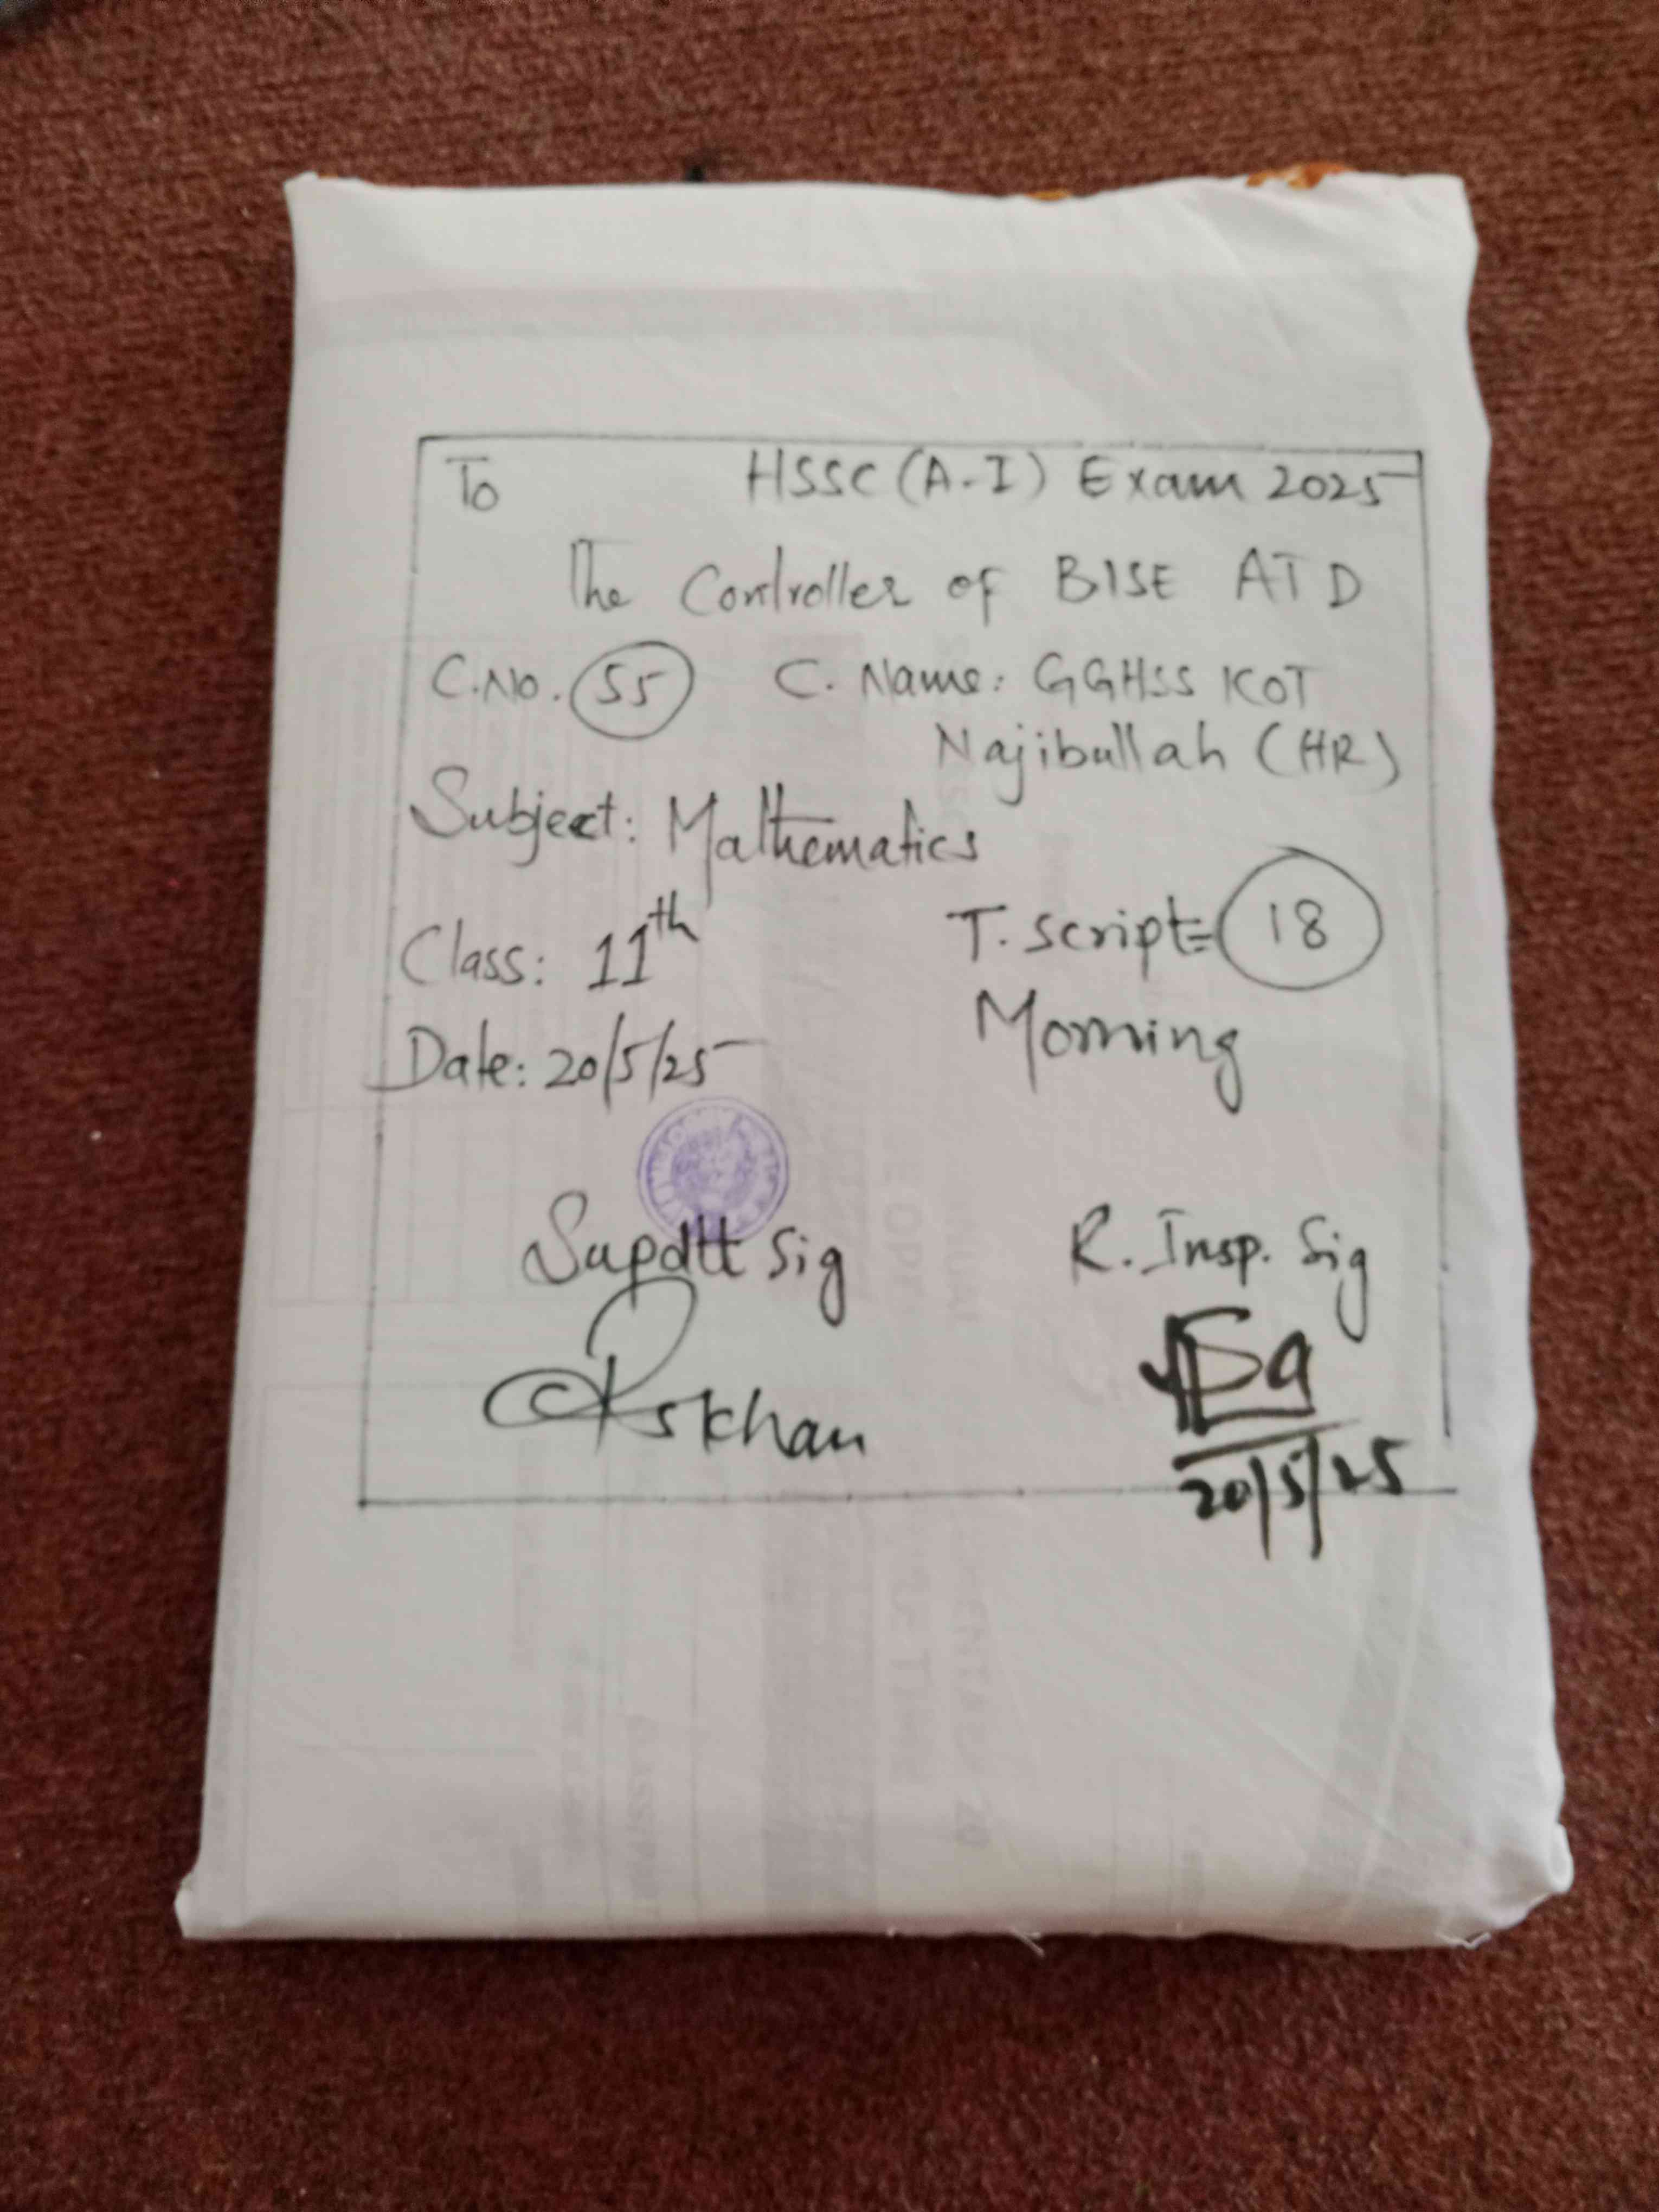 To HSSC (A-I) Exam 2025
The Controller of BISE ATD
C.No. 55 C. Name: GGHSS KOT
Najibullah (HR)
Subject: Mathematics
Class: 11th T. script= 18
Date: 20/5/25 Morning
Supdtt Sig R. Insp. Sig
khan
20/5/25